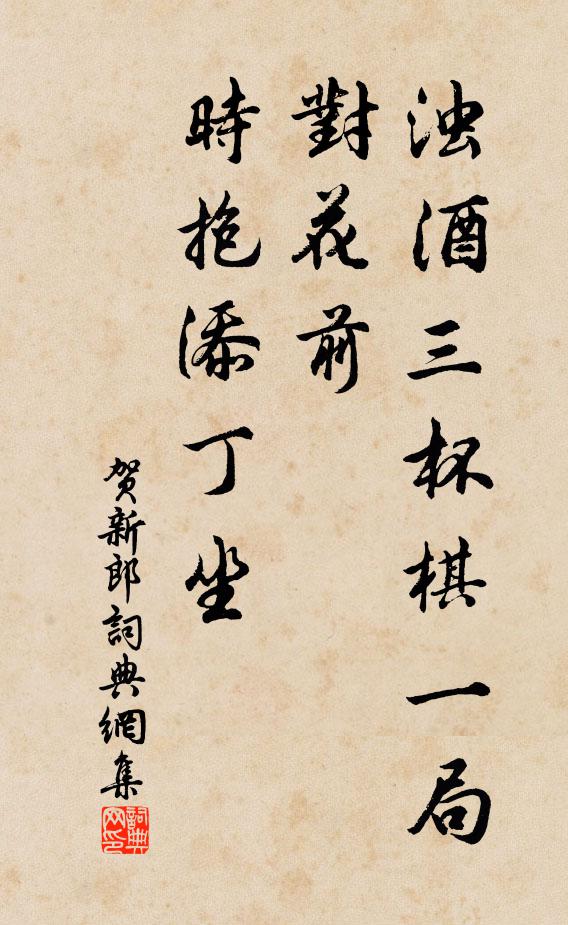 浊酒三杯棋一局
對花前
時抱添丁坐
贺新郎詞典網集
詞典网印